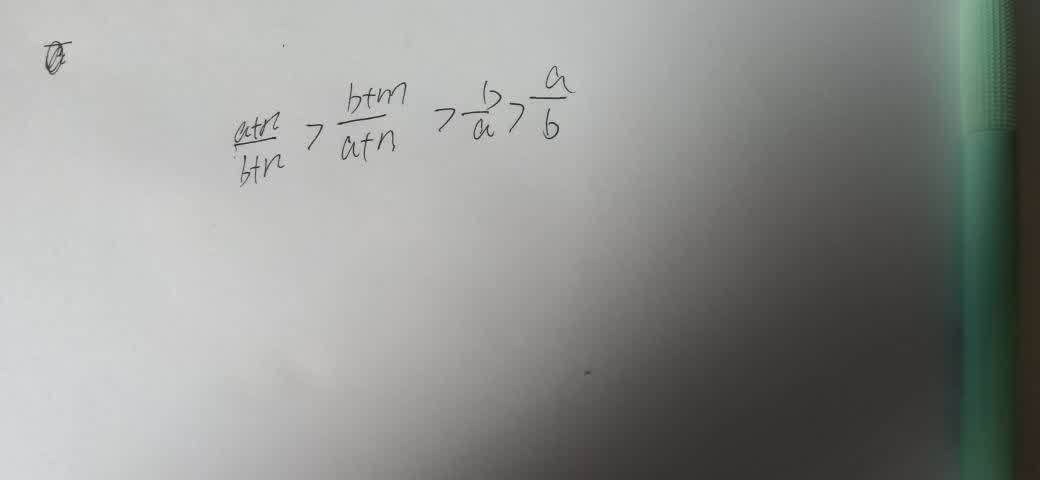 (a+n)/(b+n) > (b+m)/(a+n) > b/a > a/b